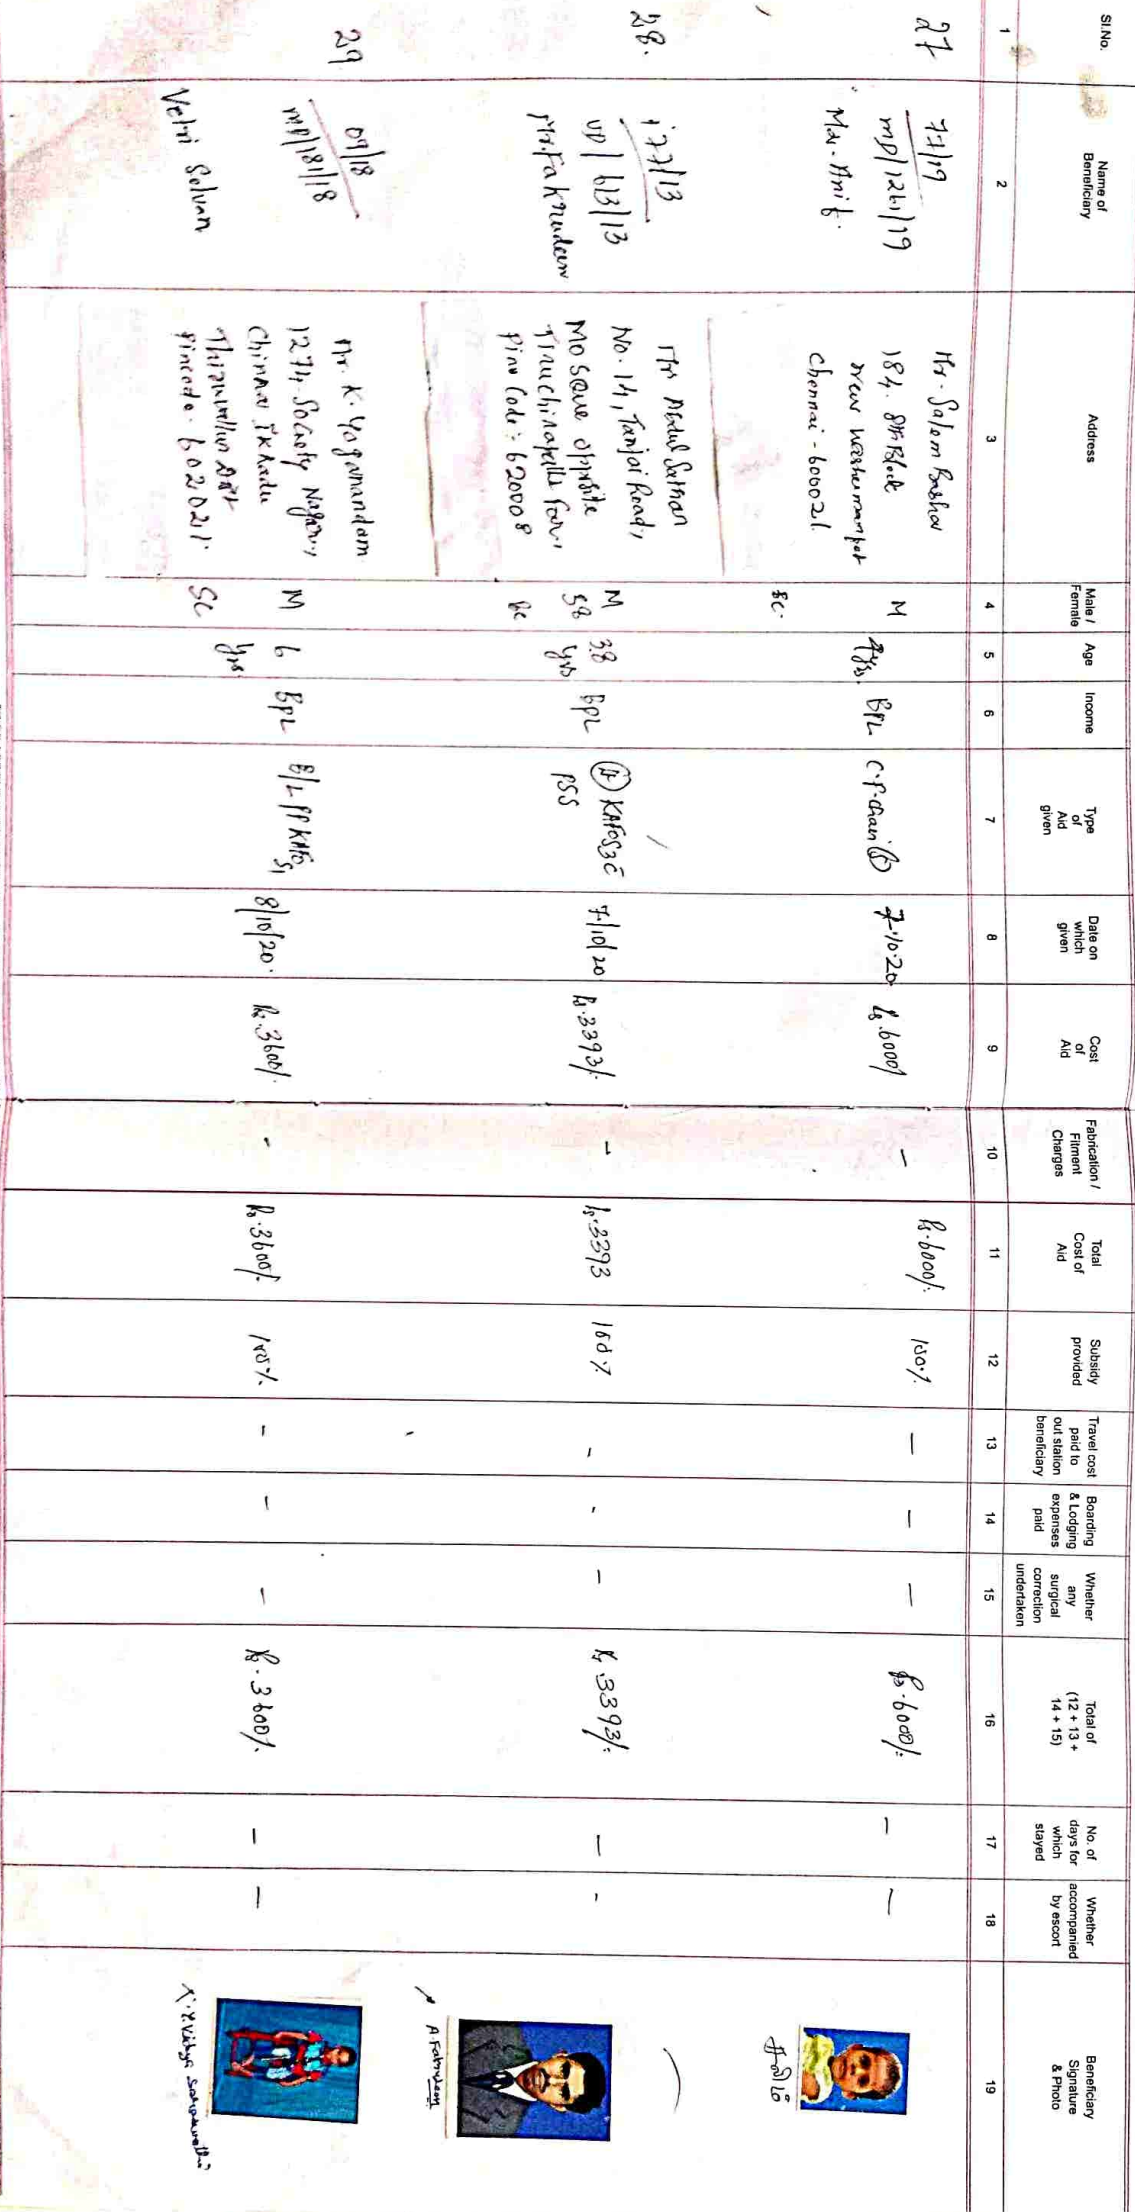 Sl.No.
Name of
Beneficiary
Address
Male /
Female
Age
Income
Type
of
Aid
given
Date on
which
given
Cost
of
Aid
Fabrication /
Fitment
Charges
Total
Cost of
Aid
Subsidy
provided
Travel cost
paid to
out station
beneficiary
Boarding
& Lodging
expenses
paid
Whether
any
surgical
correction
undertaken
Total of
(12 + 13 +
14 + 15)
No. of
days for
which
stayed
Whether
accompanied
by escort
Beneficiary
Signature
& Photo
1 2 3 4 5 6 7 8 9 10 11 12 13 14 15 16 17 18 19
27
77/19
MD/1261/19
Md. Anif.
Mr. Salem Basha
184. 8th Block
new washermanpet
Chennai - 600021.
M
BC.
4yrs.
BPL
C.P.chair
7-10-20
Rs.6000/
—
Rs.6000/-
100%
—
—
—
Rs.6000/-
—
—
28.
177/13
UD/613/13
Mr. Fakrudeen
Mr Abdul Sathar
No. 14, Tanjai Road,
Mosque opposite
Pin Code: 620008
M
58
BC
38
yrs
BPL
KAFOS3C
PSS
7/10/20
Rs.3393/-
-
Rs.3393
100%
-
-
-
Rs.3393/-
—
-
A.Fakrudeen
29
09/18
MD/181/18
Vetri Selvan
Mr. K. Yoganandam
1274. Society Nagar,
Chinna Ekkadu
Thiruvallur Dist
Pincode. 602021.
M
SC
6
yrs.
BPL
B/L PP KAFOS,
8/10/20.
Rs.3600/-
-
Rs.3600/-
100%.
-
-
-
Rs.3600/-
—
—